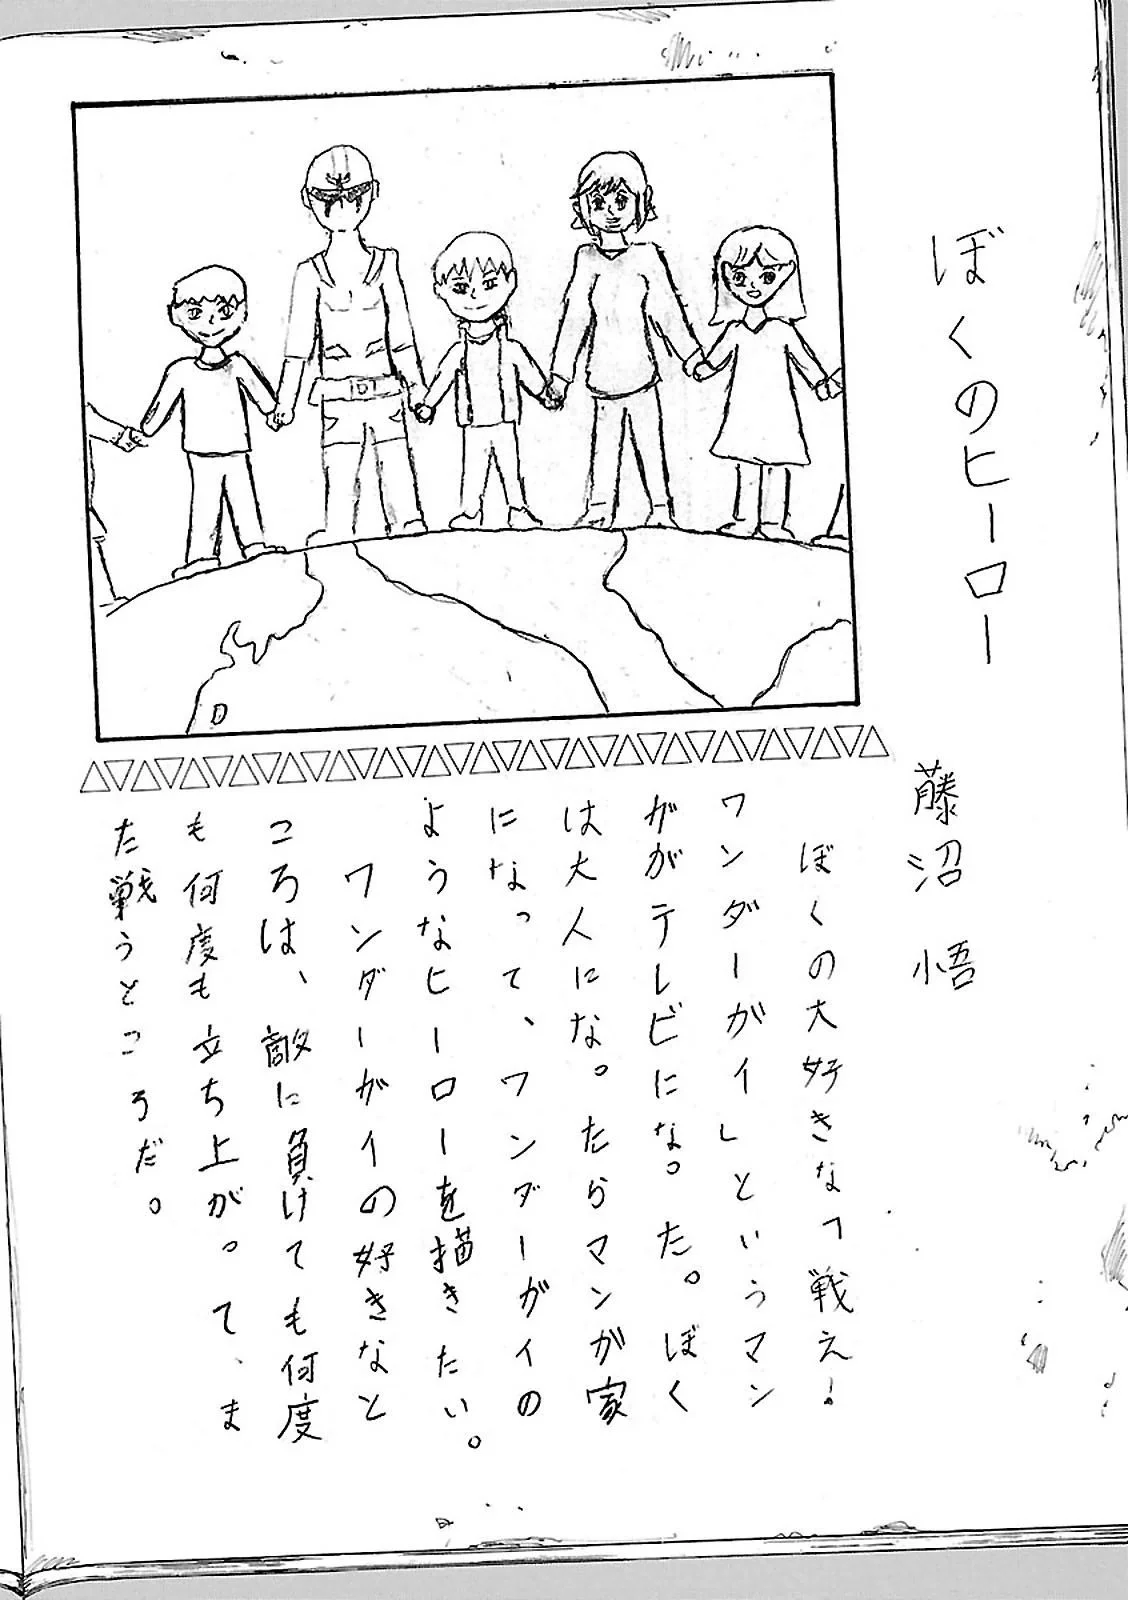 ぼくのヒーロー
藤沼 悟
ぼくの大好きな「戦え!
ワンダーガイ」というマン
ガがテレビになった。ぼく
は大人になったらマンガ家
になって、ワンダーガイの
ようなヒーローを描きたい。
ワンダーガイの好きなと
ころは、敵に負けても何度
も何度も立ち上がって、ま
た戦うところだ。